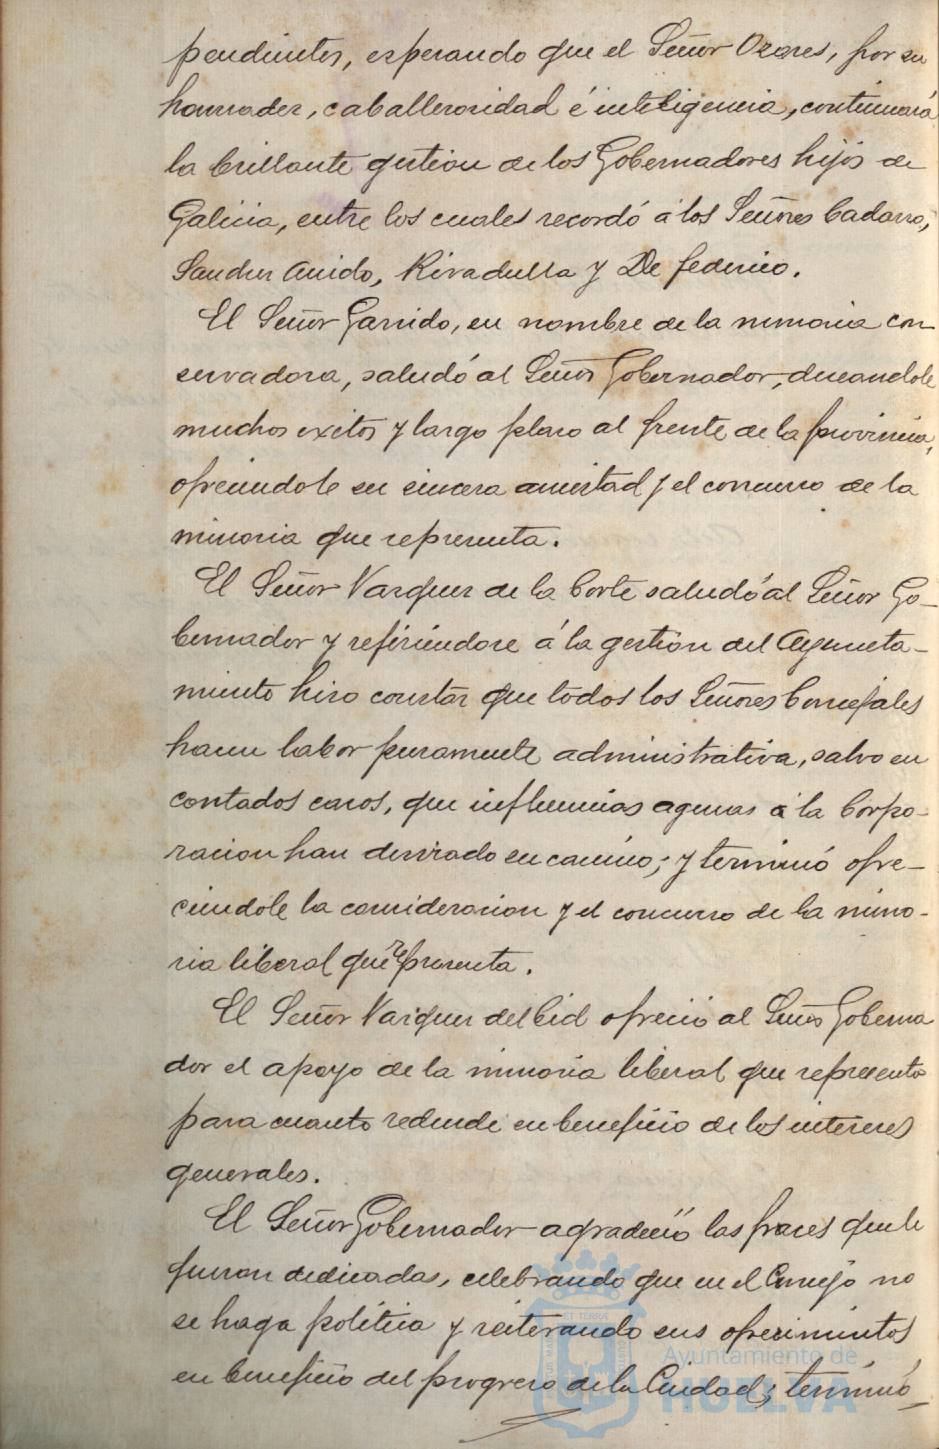 pendientes, esperando que el Señor Ozores, por su
honradez, caballerosidad é inteligencia, continuará
la brillante gestion de los Gobernadores hijos de
Galicia, entre los cuales recordó á los Señores Cadarso,
Sanchez Anido, Rivadulla y De Federico.
El Señor Garrido, en nombre de la minoria con-
servadora, saludó al Señor Gobernador, deseandole
muchos exitos y largo plazo al frente de la provincia,
ofreciendole su sincera amistad y el concurso de la
minoria que representa.
El Señor Vazquez de la Corte saludó al Señor Go-
bernador y refiriendose á la gestion del Ayunta-
miento hizo constar que todos los Señores Concejales
hacen labor puramente administrativa, salvo en
contados casos, que influencias agenas á la Corpo-
racion han desviado su camino; y terminó ofre-
ciendole la consideracion y el concurso de la mino-
ria liberal que representa.
El Señor Vazquez del Cid ofreció al Señor Goberna
dor el apoyo de la minoria liberal que representa
para cuanto redunde en beneficio de los intereses
generales.
El Señor Gobernador agradeció las frases que le
fueron dedicadas, celebrando que en el Concejo no
se haga politica y reiterando sus ofrecimientos
en beneficio del progreso de la Ciudad; terminó
Ayuntamiento de
HUELVA